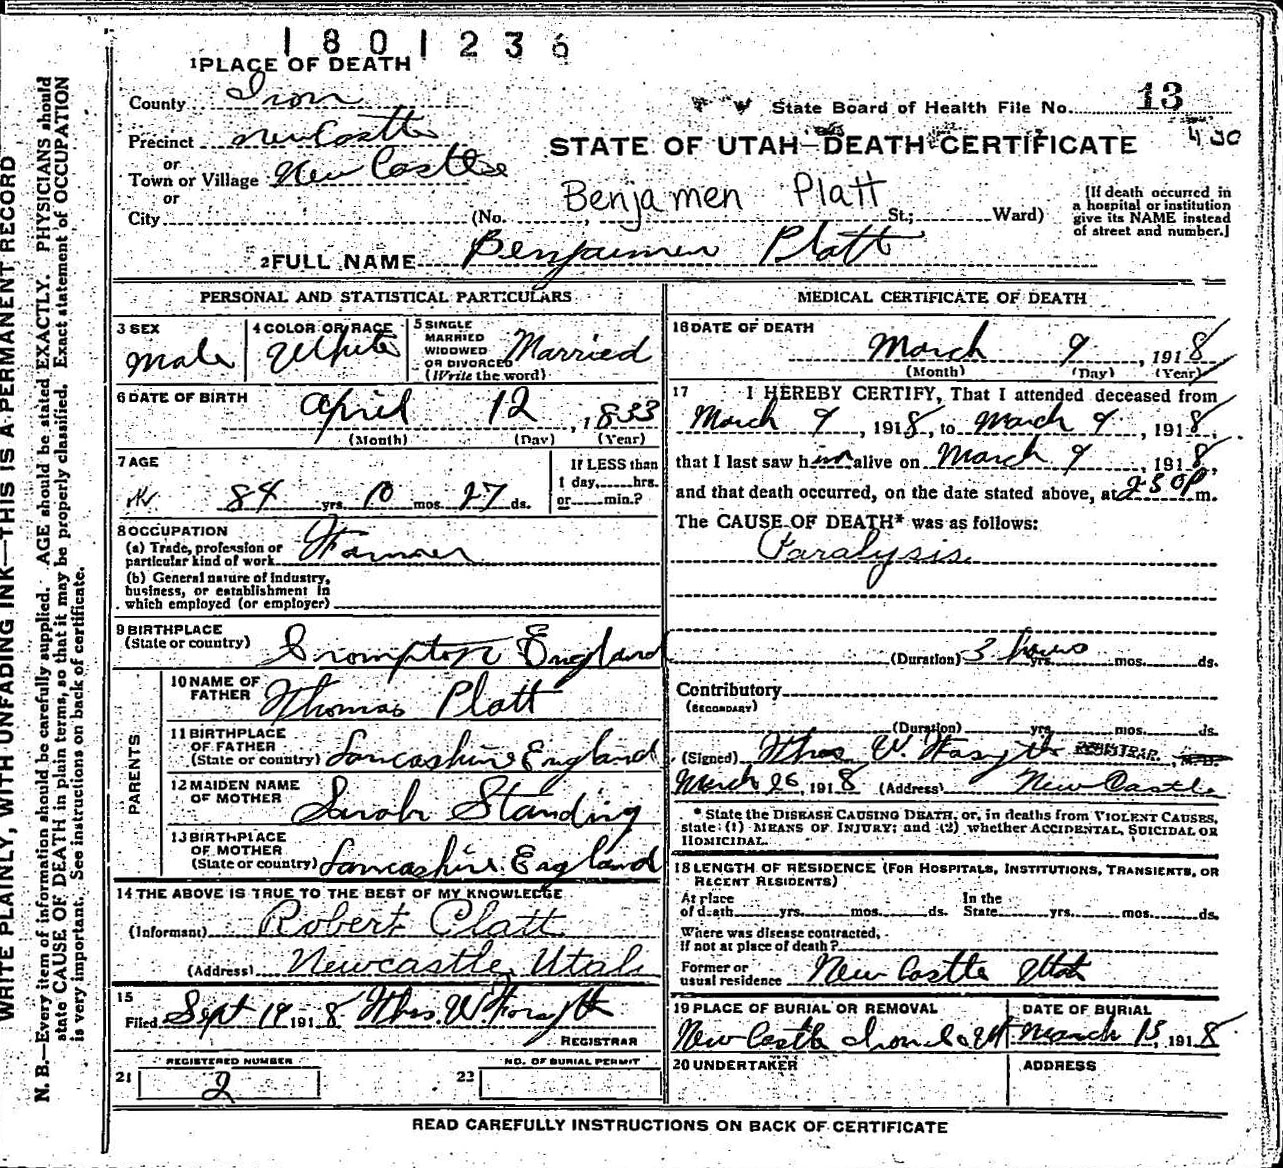 1801236
1 PLACE OF DEATH
County Iron
State Board of Health File No. 13
Precinct New Castle
430
STATE OF UTAH—DEATH CERTIFICATE
or
Town or Village New Castle
or
Benjamen Platt
City (No. St.; Ward)
[If death occurred in
a hospital or institution
give its NAME instead
of street and number.]
2 FULL NAME Benjamen Platt
PERSONAL AND STATISTICAL PARTICULARS
3 SEX
Male
4 COLOR OR RACE
White
5 SINGLE
MARRIED
WIDOWED
OR DIVORCED
(Write the word)
Married
6 DATE OF BIRTH
April 12, 1833
(Month) (Day) (Year)
7 AGE
84 yrs. 10 mos. 27 ds.
If LESS than
1 day, hrs.
or min.?
8 OCCUPATION
(a) Trade, profession or
particular kind of work Farmer
(b) General nature of industry,
business, or establishment in
which employed (or employer)
9 BIRTHPLACE
(State or country) Crompton England
PARENTS
10 NAME OF
FATHER Thomas Platt
11 BIRTHPLACE
OF FATHER
(State or country) Lancashire England
12 MAIDEN NAME
OF MOTHER Sarah Standing
13 BIRTHPLACE
OF MOTHER
(State or country) Lancashire England
14 THE ABOVE IS TRUE TO THE BEST OF MY KNOWLEDGE
(Informant) Robert Platt
(Address) Newcastle, Utah
15
Filed Sept 19 1918 Thos. W. Forsyth
REGISTRAR
REGISTERED NUMBER
21 2
NO. OF BURIAL PERMIT
22
MEDICAL CERTIFICATE OF DEATH
16 DATE OF DEATH
March 9, 1918
(Month) (Day) (Year)
17 I HEREBY CERTIFY, That I attended deceased from
March 9, 1918, to March 9, 1918,
that I last saw him alive on March 9, 1918,
and that death occurred, on the date stated above, at 250 P m.
The CAUSE OF DEATH* was as follows:
Paralysis
(Duration) 3 hours yrs. mos. ds.
Contributory
(SECONDARY)
(Duration) yrs. mos. ds.
(Signed) Thos. W. Forsyth REGISTRAR, M.D.
March 26, 1918 (Address) New Castle
* State the DISEASE CAUSING DEATH, or, in deaths from VIOLENT CAUSES,
state (1) MEANS OF INJURY; and (2) whether ACCIDENTAL, SUICIDAL OR
HOMICIDAL.
18 LENGTH OF RESIDENCE (FOR HOSPITALS, INSTITUTIONS, TRANSIENTS, OR
RECENT RESIDENTS)
At place
of death yrs. mos. ds.
In the
State yrs. mos. ds.
Where was disease contracted,
if not at place of death?
Former or
usual residence New Castle Utah
19 PLACE OF BURIAL OR REMOVAL
New Castle Iron Co
DATE OF BURIAL
March 13, 1918
20 UNDERTAKER
ADDRESS
READ CAREFULLY INSTRUCTIONS ON BACK OF CERTIFICATE
WRITE PLAINLY, WITH UNFADING INK—THIS IS A PERMANENT RECORD
N. B.—Every item of information should be carefully supplied. AGE should be stated EXACTLY. PHYSICIANS should
state CAUSE OF DEATH in plain terms, so that it may be properly classified. Exact statement of OCCUPATION
is very important. See instructions on back of certificate.